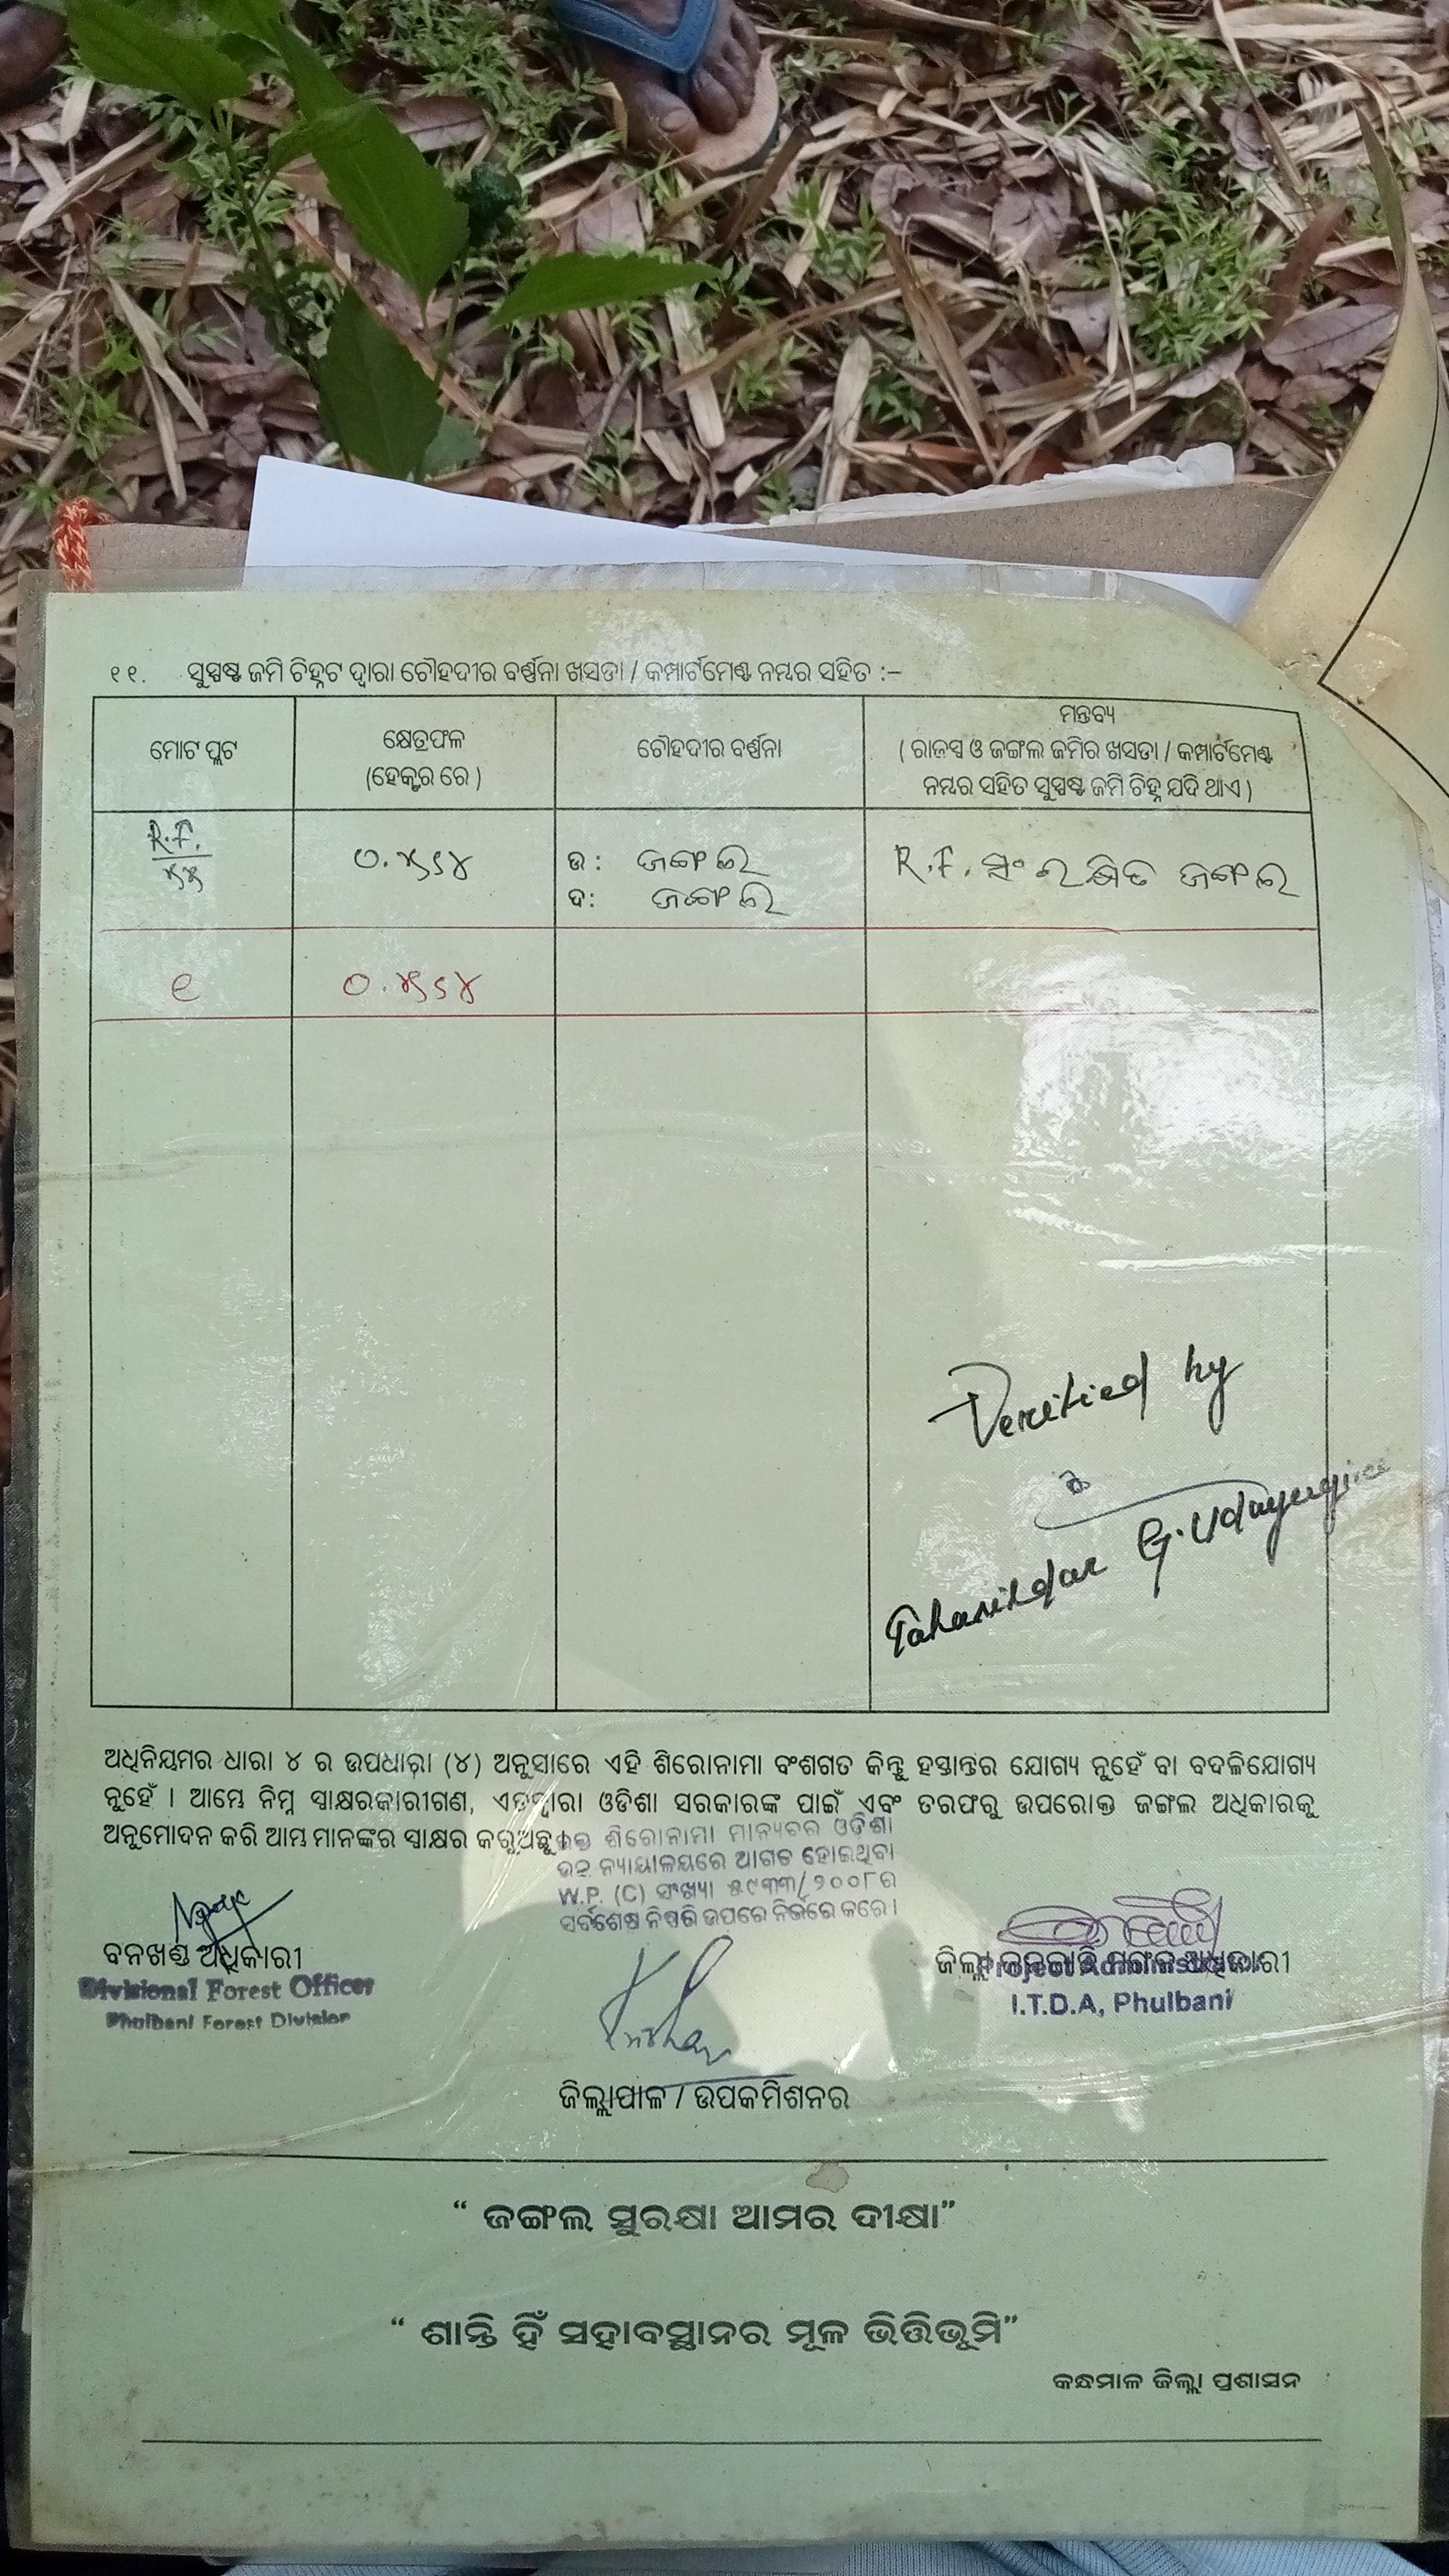 ୧୧. ସୁସ୍ପଷ୍ଟ ଜମି ଚିହ୍ନଟ ଦ୍ଵାରା ଚୌହଦୀର ବର୍ଣ୍ଣନା ଖସଡା / କମ୍ପାର୍ଟମେଣ୍ଟ ନମ୍ଭର ସହିତ :–
ମୋଟ ପ୍ଲଟ
କ୍ଷେତ୍ରଫଳ
(ହେକ୍ଟର ରେ )
ଚୌହଦୀର ବର୍ଣ୍ଣନା
ମନ୍ତବ୍ୟ
( ରାଜସ୍ଵ ଓ ଜଙ୍ଗଲ ଜମିର ଖସଡା / କମ୍ପାର୍ଟମେଣ୍ଟ
ନମ୍ଭର ସହିତ ସୁସ୍ପଷ୍ଟ ଜମି ଚିହ୍ନ ଯଦି ଥାଏ )
R.F.
ଉ : ଜଙ୍ଗଲ
ଦ: ଜଙ୍ଗଲ
R.F. ସଂରକ୍ଷିତ ଜଙ୍ଗଲ
୧
Verified by
Tahasildar G. Udayagiri
ଅଧିନିୟମର ଧାରା ୪ ର ଉପଧାରା (୪) ଅନୁସାରେ ଏହି ଶିରୋନାମା ବଂଶଗତ କିନ୍ତୁ ହସ୍ତାନ୍ତର ଯୋଗ୍ୟ ନୁହେଁ ବା ବଦଳିଯୋଗ୍ୟ
ନୁହେଁ । ଆମ୍ଭେ ନିମ୍ନ ସ୍ଵାକ୍ଷରକାରୀଗଣ, ଏତଦ୍ଵାରା ଓଡିଶା ସରକାରଙ୍କ ପାଇଁ ଏବଂ ତରଫରୁ ଉପରୋକ୍ତ ଜଙ୍ଗଲ ଅଧିକାରକୁ
ଅନୁମୋଦନ କରି ଆମ୍ଭ ମାନଙ୍କର ସ୍ଵାକ୍ଷର କରୁଅଛୁ ।
ଉକ୍ତ ଶିରୋନାମା ମାନ୍ୟବର ଓଡ଼ିଶା
ଉଚ୍ଚ ନ୍ୟାୟାଳୟରେ ଆଗତ ହୋଇଥିବା
W.P. (C) ସଂଖ୍ୟା ୫୯୩୩/୨୦୦୮ ର
ସର୍ବଶେଷ ନିଷ୍ପତି ଉପରେ ନିର୍ଭର କରେ ।
ବନଖଣ୍ଡ ଅଧିକାରୀ
Divisional Forest Officer
Phulbani Forest Division
ଜିଲ୍ଲା ଜନଜାତି ମଙ୍ଗଳ ଅଧିକାରୀ
Project Administrator
I.T.D.A, Phulbani
ଜିଲ୍ଲାପାଳ / ଉପକମିଶନର
“ ଜଙ୍ଗଲ ସୁରକ୍ଷା ଆମର ଦୀକ୍ଷା”
“ ଶାନ୍ତି ହିଁ ସହାବସ୍ଥାନର ମୂଳ ଭିତ୍ତିଭୂମି”
କନ୍ଧମାଳ ଜିଲ୍ଲା ପ୍ରଶାସନ